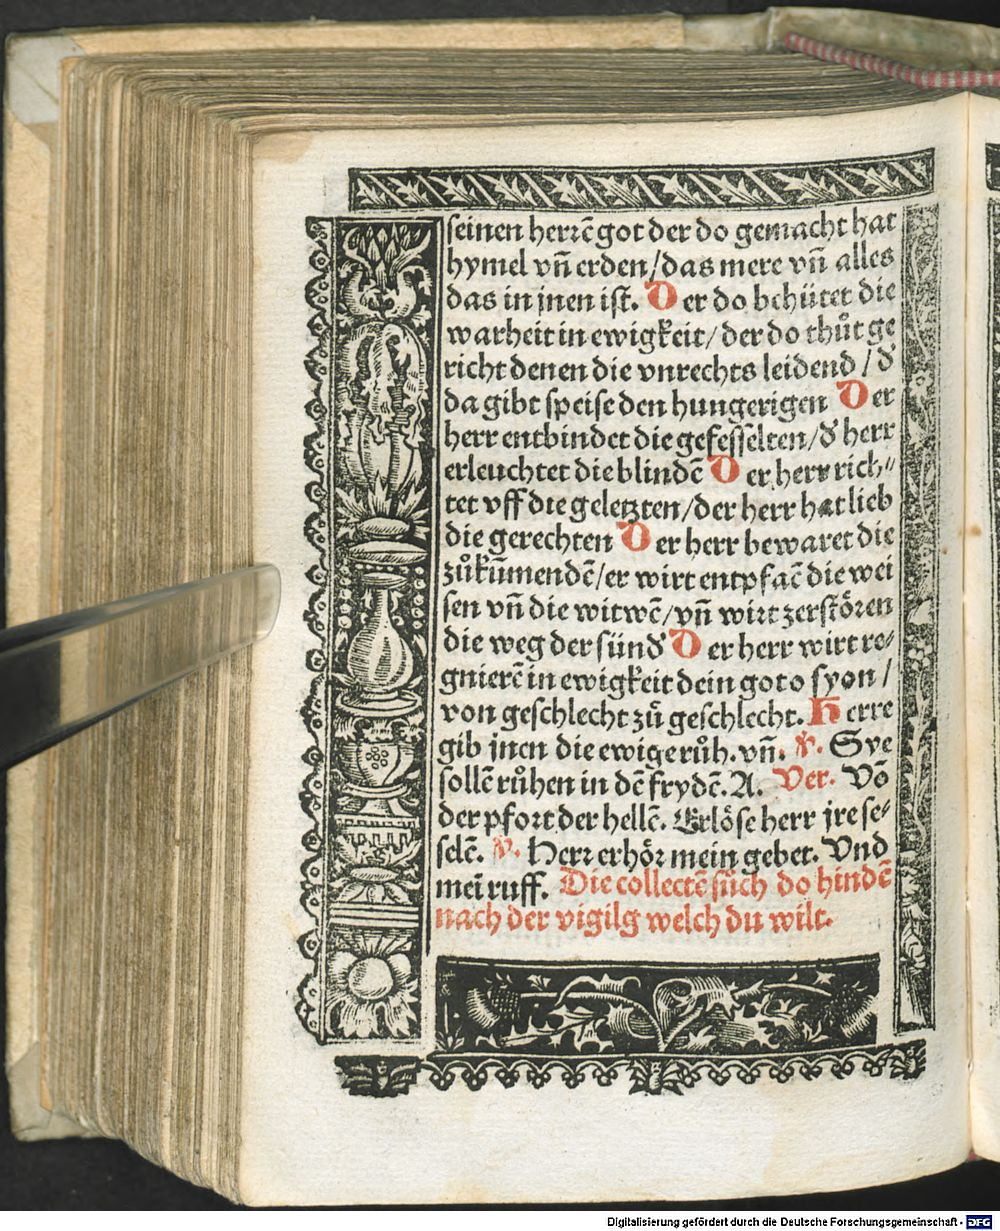 seinen herrē got der do gemacht hat
hymel vñ erden/das mere vñ alles
das in jnen ist. Der do behütet die
warheit in ewigkeit/der do thůt ge
richt denen die vnrechts leidend/ď
da gibt speise den hungerigen Der
herr entbindet die gefesselten/ď herr
erleuchtet die blindē Der herr rich⸗
tet vff die geletzten/der herr hat lieb
die gerechten Der herr bewaret die
zůkūmendē/er wirt entpfaē die wei
sen vñ die witwē/vñ wirt zerstören
die weg der sünď Der herr wirt re⸗
gnierē in ewigkeit dein got o syon/
von geschlecht zů geschlecht. Herre
gib jnen die ewige růh. vñ. ꝶ. Sye
sollē růhen in dē frydē. A. Ver. Vō
der pfort der hellē. Erlöse herr jre se⸗
selē. ℣. Herr erhör mein gebet. Vnd
mei ruff. Die collectē sůch do hindē
nach der vigilg welch du wilt.
Digitalisierung gefördert durch die Deutsche Forschungsgemeinschaft - DFG